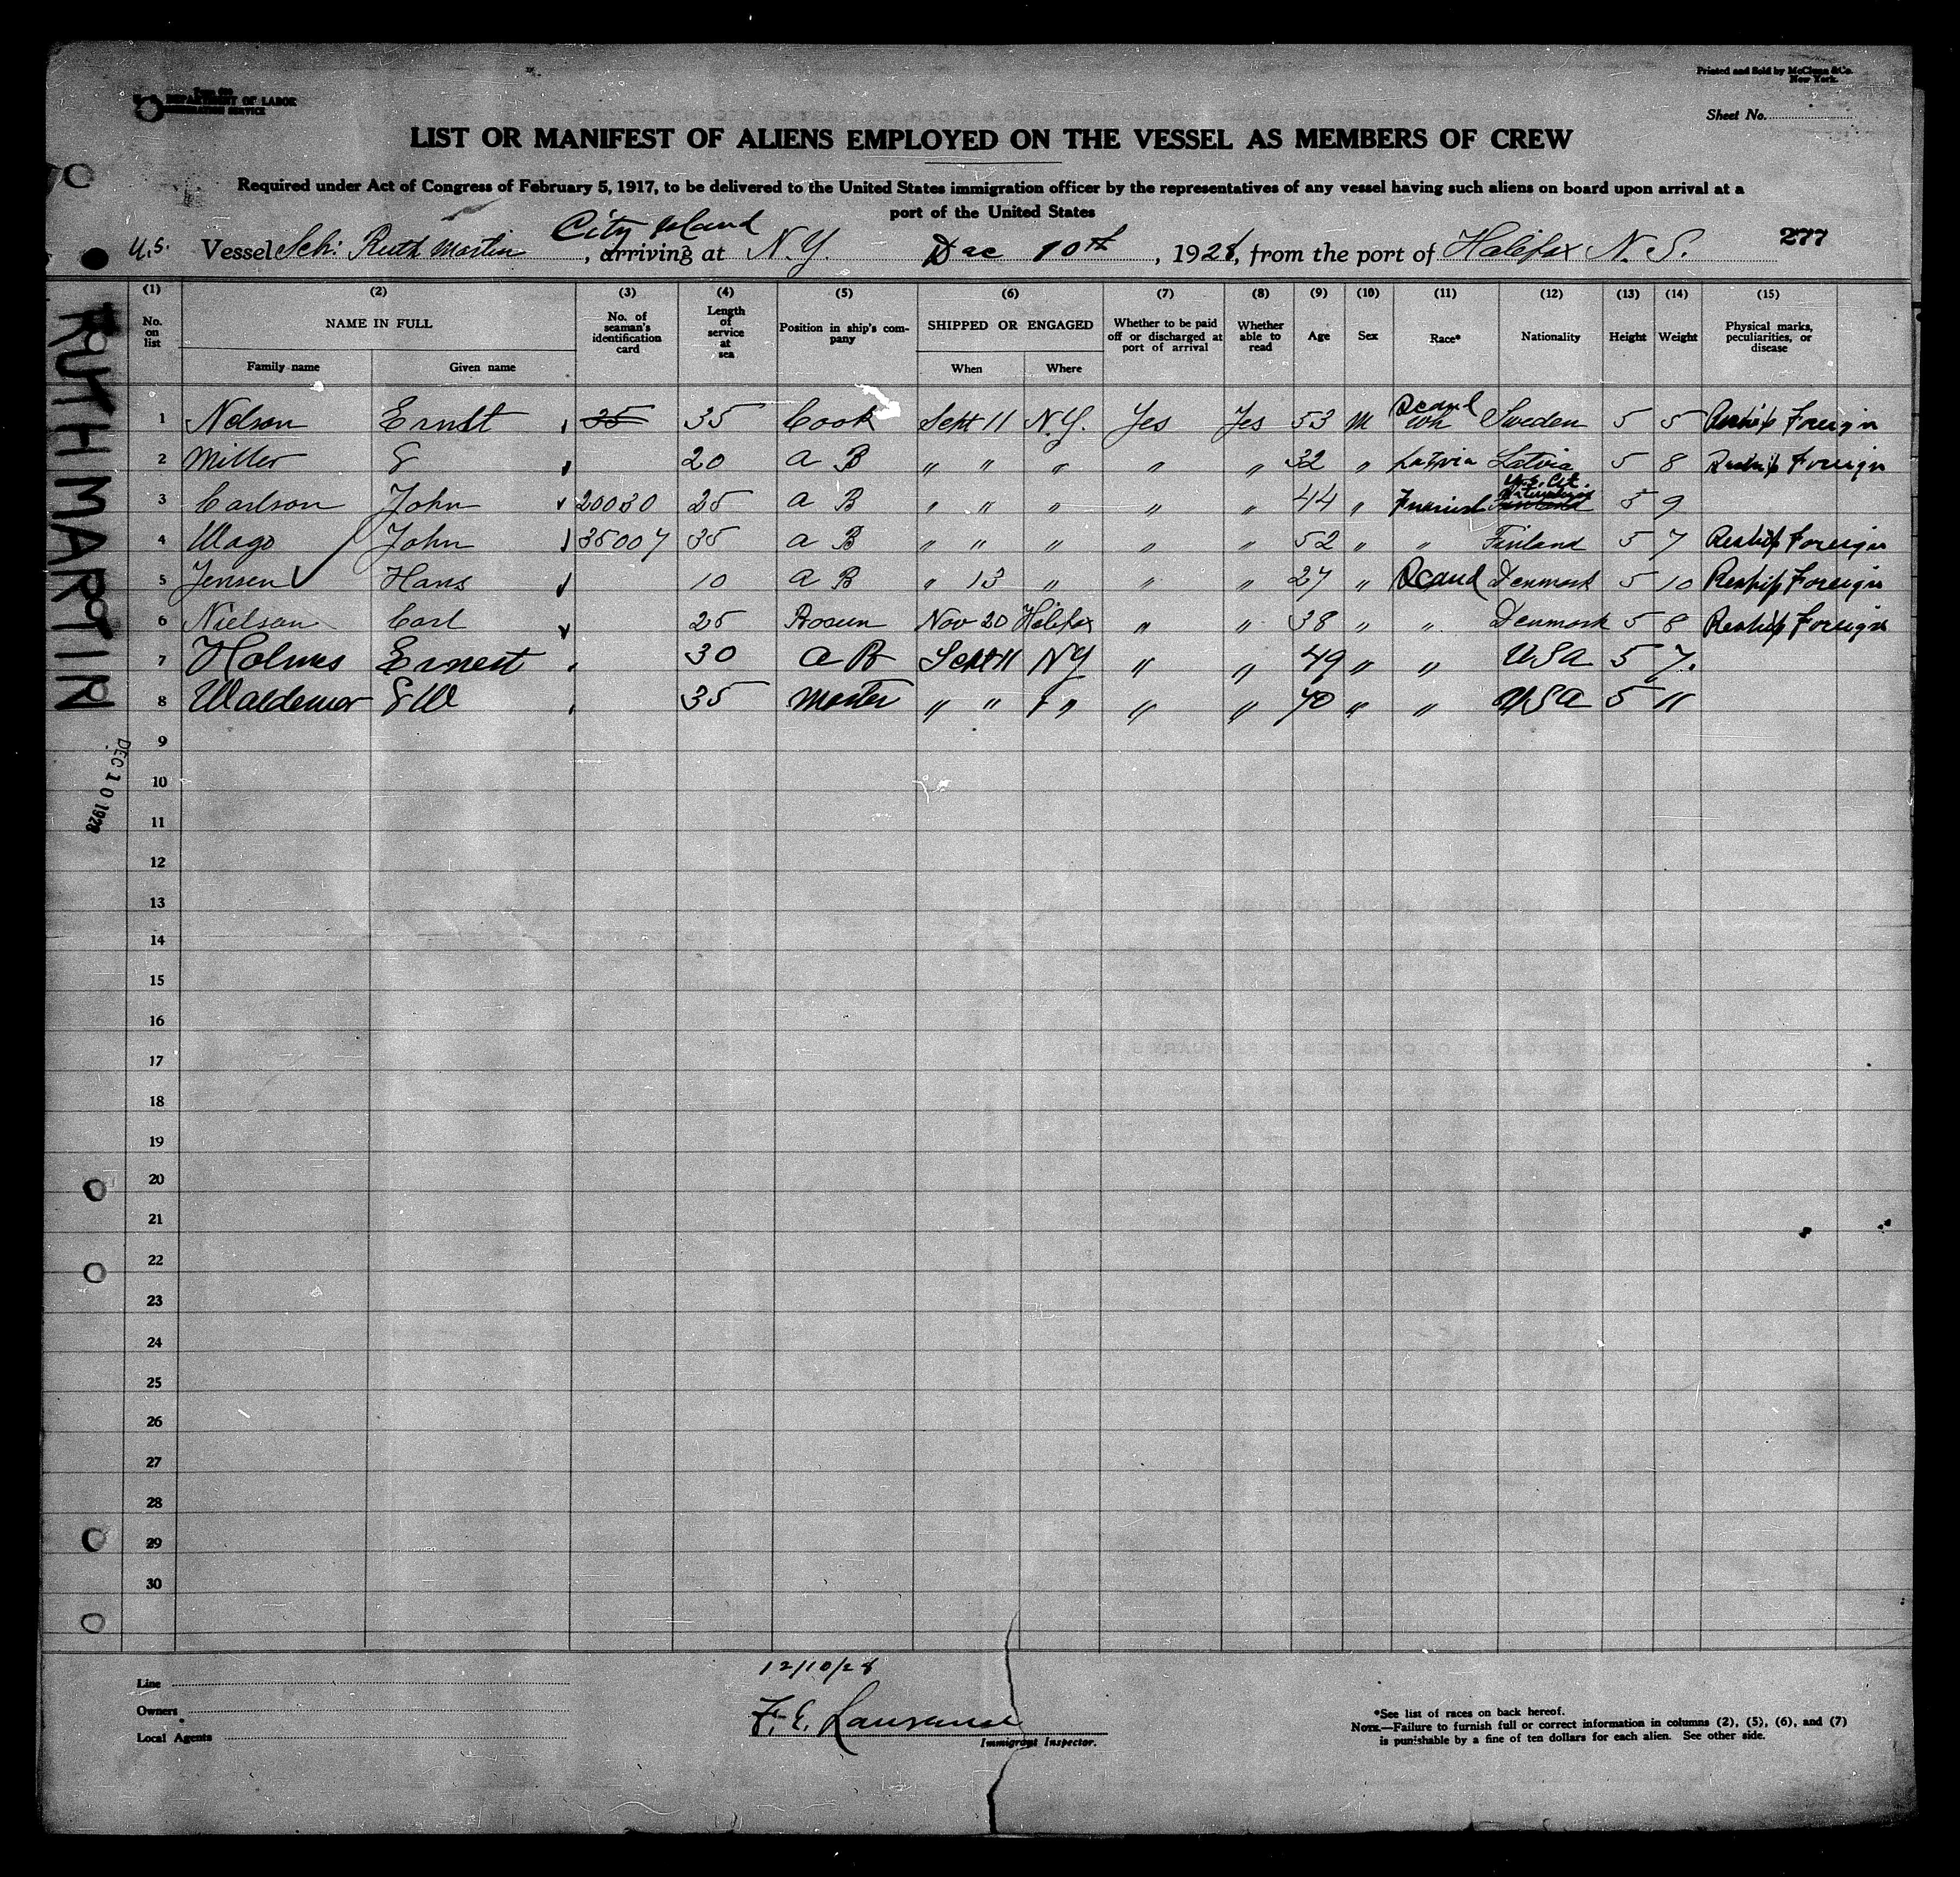 Printed and Sold by McClunn & Co.
New York.
DEPARTMENT OF LABOR
IMMIGRATION SERVICE
Sheet No.
LIST OR MANIFEST OF ALIENS EMPLOYED ON THE VESSEL AS MEMBERS OF CREW
Required under Act of Congress of February 5, 1917, to be delivered to the United States immigration officer by the representatives of any vessel having such aliens on board upon arrival at a
port of the United States
City Island
U.S. Vessel Sch: Ruth Martin, arriving at N.Y. Dec 10th, 1928, from the port of Halifax N. S. 277
RUTH MARTIN
DEC 10 1928
(1) (2) (3) (4) (5) (6) (7) (8) (9) (10) (11) (12) (13) (14) (15)
No. on list NAME IN FULL Family name Given name No. of seaman's identification card Length of service at sea Position in ship's company SHIPPED OR ENGAGED When Where Whether to be paid off or discharged at port of arrival Whether able to read Age Sex Race* Nationality Height Weight Physical marks, peculiarities, or disease
1 Nelson Ernst 35 35 Cook Sept 11 N.Y. Yes Yes 53 M Scand Sweden 5 5 Reship Foreign
2 Miller E 20 a B " " " " " 32 " Latvia Latvia 5 8 Reship Foreign
3 Carlson John 20030 25 a B " " " " " 44 " Finnish U.S. Cit. Finland 5 9
4 Wago John 35007 35 a B " " " " " 52 " " Finland 5 7 Reship Foreign
5 Jensen Hans 10 a B " 13 " " " 27 " Scand Denmark 5 10 Reship Foreign
6 Nielsen Carl 25 Bosun Nov 20 Halifax " " 38 " " Denmark 5 8 Reship Foreign
7 Holmes Ernest 30 a B Sept 11 NY " " 49 " " USA 5 7.
8 Waldemar E W 35 Master " " " " " 40 " " USA 5 11
9
10
11
12
13
14
15
16
17
18
19
20
21
22
23
24
25
26
27
28
29
30
12/10/28
Line
Owners
Local Agents
F. E. Lawrance
Immigrant Inspector.
*See list of races on back hereof.
NOTE.—Failure to furnish full or correct information in columns (2), (5), (6), and (7)
is punishable by a fine of ten dollars for each alien. See other side.